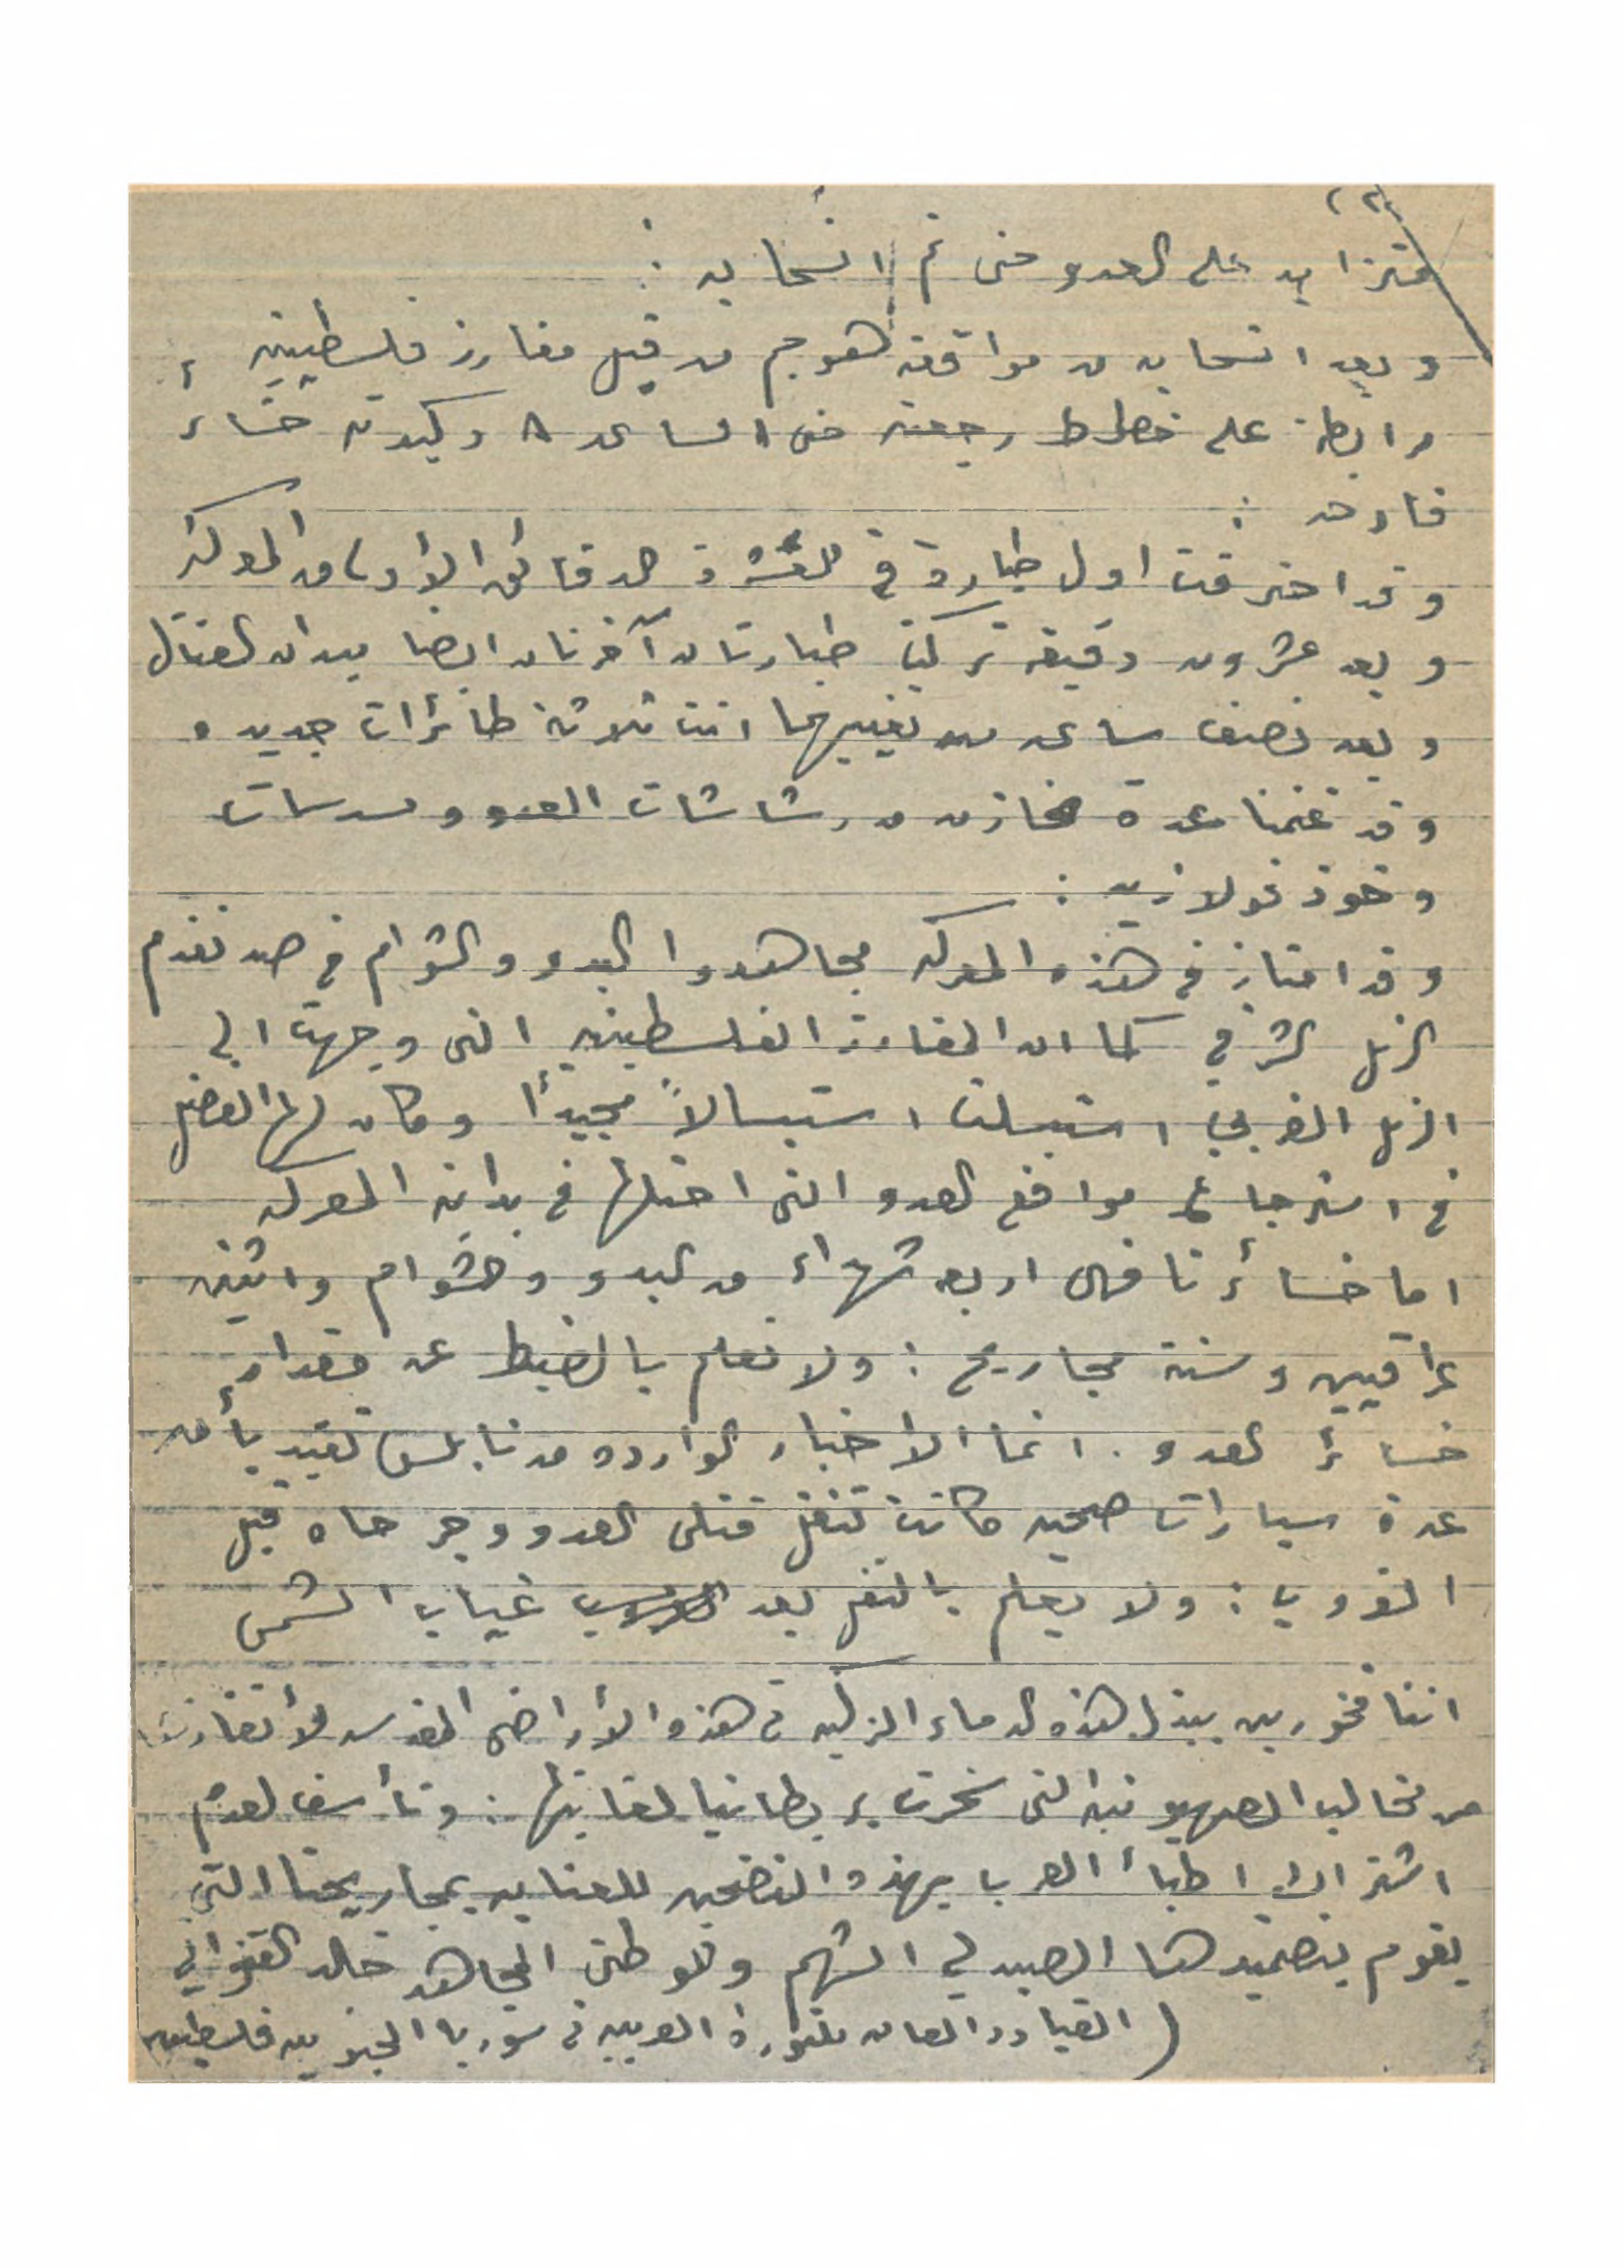 متزايد على العدو حتى تم انسحابه :
وبعد انسحابه من مواقعه هوجم من قبل مفارز فلسطينية
مرابطة على خطوط رجعته حتى الساعة ٨ وكبدته خسائر
فادحة :
وقد احترقت اول طيارة في الدقائق الأولى من المعركة
وبعد عشرون دقيقة تركت طيارتان آخرتان ايضا ميدان القتال
وبعد نصف ساعة من تغيبهما اتت ثلاثة طائرات جديده
وقد غنمنا عدة مخازن من رشاشات العدو ومسدسات
وخوذ فولازيه :
وقد امتاز في هذه المعركة مجاهدوا البدو والشوام في صد تقدم
الرتل الشرقي كما ان المفارز الفلسطينيه التي وجهت الى
الرتل الغربي استبسلت استبسالاً مجيداً وكان لها الفضل
في استرجاع مواقع العدو التي احتلها في بداية المعركه
اما خسائرنا فهي اربعة شهداء من البدو والشوام واثنين
عراقيين وستة مجاريح : ولا نعلم بالضبط عن مقدار
خسائر العدو . انما الاخبار الوارده من نابلس تفيد بأن
عدة سيارات صحيه كانت تنقل قتلى العدو وجرحاه قبل
الغروب : ولا يعلم بالنقل بعد غياب الشمس
اننا فخورين ببذل هذه الدماء الزكيه في هذه الأراضي المقدسه لأنقاذها
من مخالب الصهيونيه التي سخرت بريطانيا لغايتها : ونأسف لعدم
اشتراك اطباء العرب بهذه التضحيه للعنايه بمجاريحنا التي
يقوم بتضميدها الصيدلي الشهم والوطني المجاهد خالد القنواتي
( القيادة العامه للثورة العربيه في سوريا الجنوبيه فلسطين